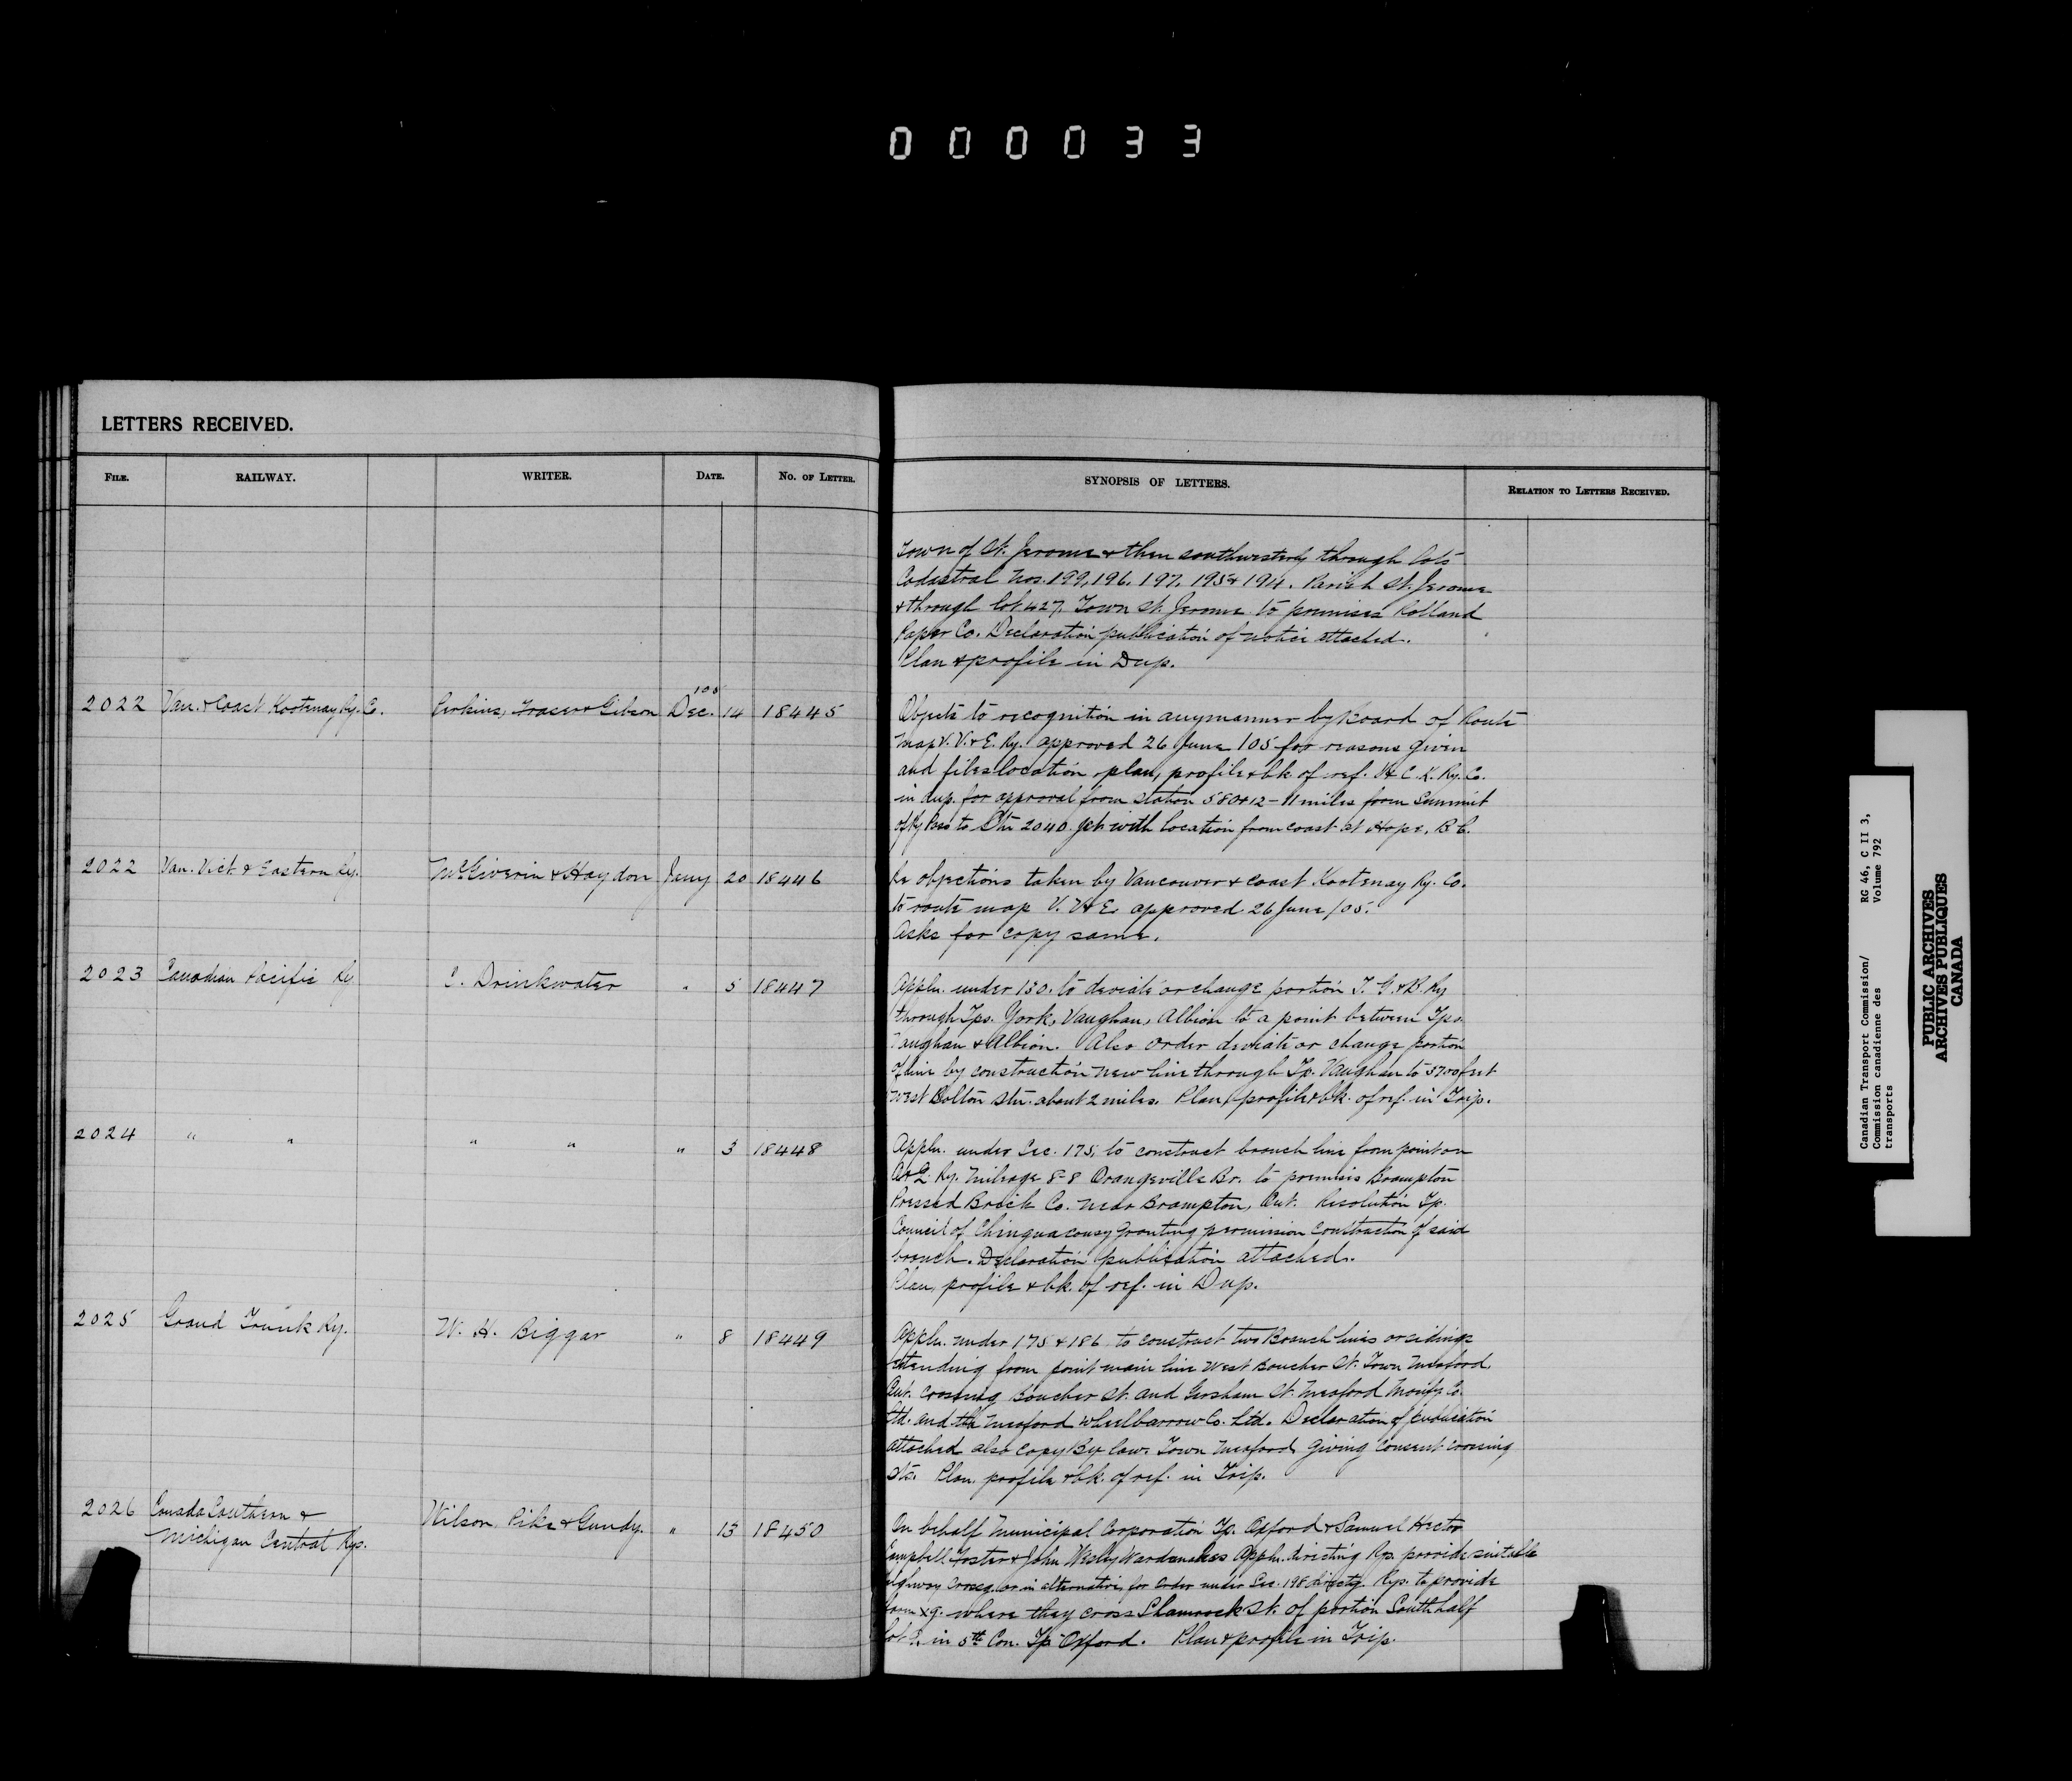 000033
LETTERS RECEIVED.
FILE. RAILWAY. WRITER. DATE. No. OF LETTER. SYNOPSIS OF LETTERS. RELATION TO LETTERS RECEIVED.
Town of St. Jerome & then southwesterly through lots
Cadastral Nos. 199, 196, 197, 195 & 194. Parish St. Jerome
& through lot 427, Town St. Jerome to premises Rolland
Paper Co. Declaration publication of notice attached.
Plan & profile in Dup.
2022 Van. & Coast Kootenay Ry. Co. Perkins, Fraser & Gibson Dec. 14 18445
Objects to recognition in anymanner by Board of Route
map V. V. & E. Ry. approved 26 June /05 for reasons given
and files location plan, profile & bk of ref. V & C. K. Ry. Co.
in dup. for approval from station 580+12 - 11 miles from Summit
of Pass to Stn 2040. with location from coast at Hope, B.C.
2022 Van. Vict. & Eastern Ry. McGiverin & Haydon Jany 20 18446
Re objections taken by Vancouver & Coast Kootenay Ry. Co.
to route map V. V & E. approved 26 June /05.
Asks for copy same.
2023 Canadian Pacific Ry C. Drinkwater " 5 18447
Appln. under 130. to deviate or change portion T. G. & B. Ry
through Tps. York, Vaughan, Albion to a point between Tps.
Vaughan & Albion. Also order deviate or change portion
of line by construction new line through Tp. Vaughan to 3700 feet
west Bolton Stn. about 2 miles. Plan, profile & bk. of ref. in Trip.
2024 " " " " " 3 18448
Appln. under Sec. 175, to construct branch line from point on
Ry. Mileage 8-8 Orangeville Br. to premises Brampton
Pressed Brick Co. near Brampton, Ont. Resolution Tp.
Council of Chinguacousy granting permission construction of said
branch. Declaration publication attached.
Plan, profile & bk. of ref. in Dup.
2025 Grand Trunk Ry. W. H. Biggar " 8 18449
Appln. under 175 & 186 to construct two Branch lines or sidings
extending from point main line West Boucher St. Town Meaford,
Ont. crossing Boucher St. and St. Meaford Manfg. Co.
Ltd. and the Meaford Wheelbarrow Co. Ltd. Declaration of publication
attached also copy By law. Town Meaford giving consent crossing
sts. Plan, profile & bk. of ref. in Trip.
2026 Canada Southern & Wilson, Pike & Gundy. " 13 18450
Michigan Central Rys.
On behalf Municipal Corporation Tp. Oxford & Samuel Hector
Campbell Foster & John Wesley Warden makes Appln. directing Rys. provide suitable
highway crossg. or in alternative, for Order under Sec. 198 directg. Rys. to provide
farm xg. where they cross Shamrock St. of portion South half
lot in 5th Con. Tp Oxford. Plan & profile in Trip.
Canadian Transport Commission/ RG 46, C II 3,
Commission canadienne des Volume 792
transports
PUBLIC ARCHIVES
ARCHIVES PUBLIQUES
CANADA